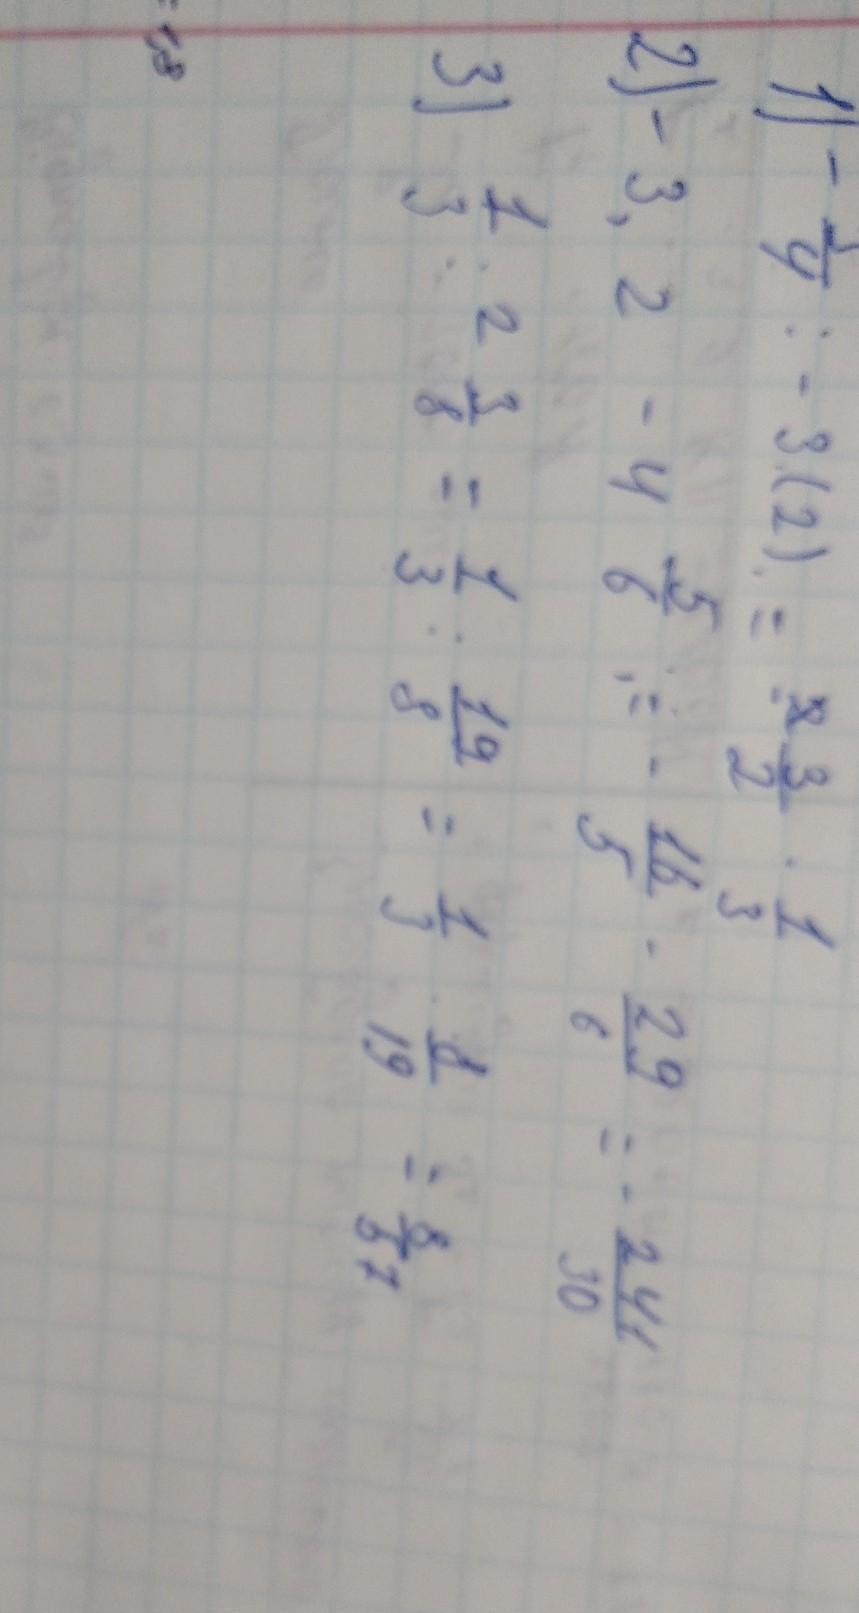 1) - 1/4 : - 3.(2) = 3/2 · 1/3
2) - 3,2 - 4 5/6 = - 16/5 - 29/6 = - 241/30
3) 1/3 : 2 3/8 = 1/3 : 19/8 = 1/3 · 8/19 = 8/57
= 1,8